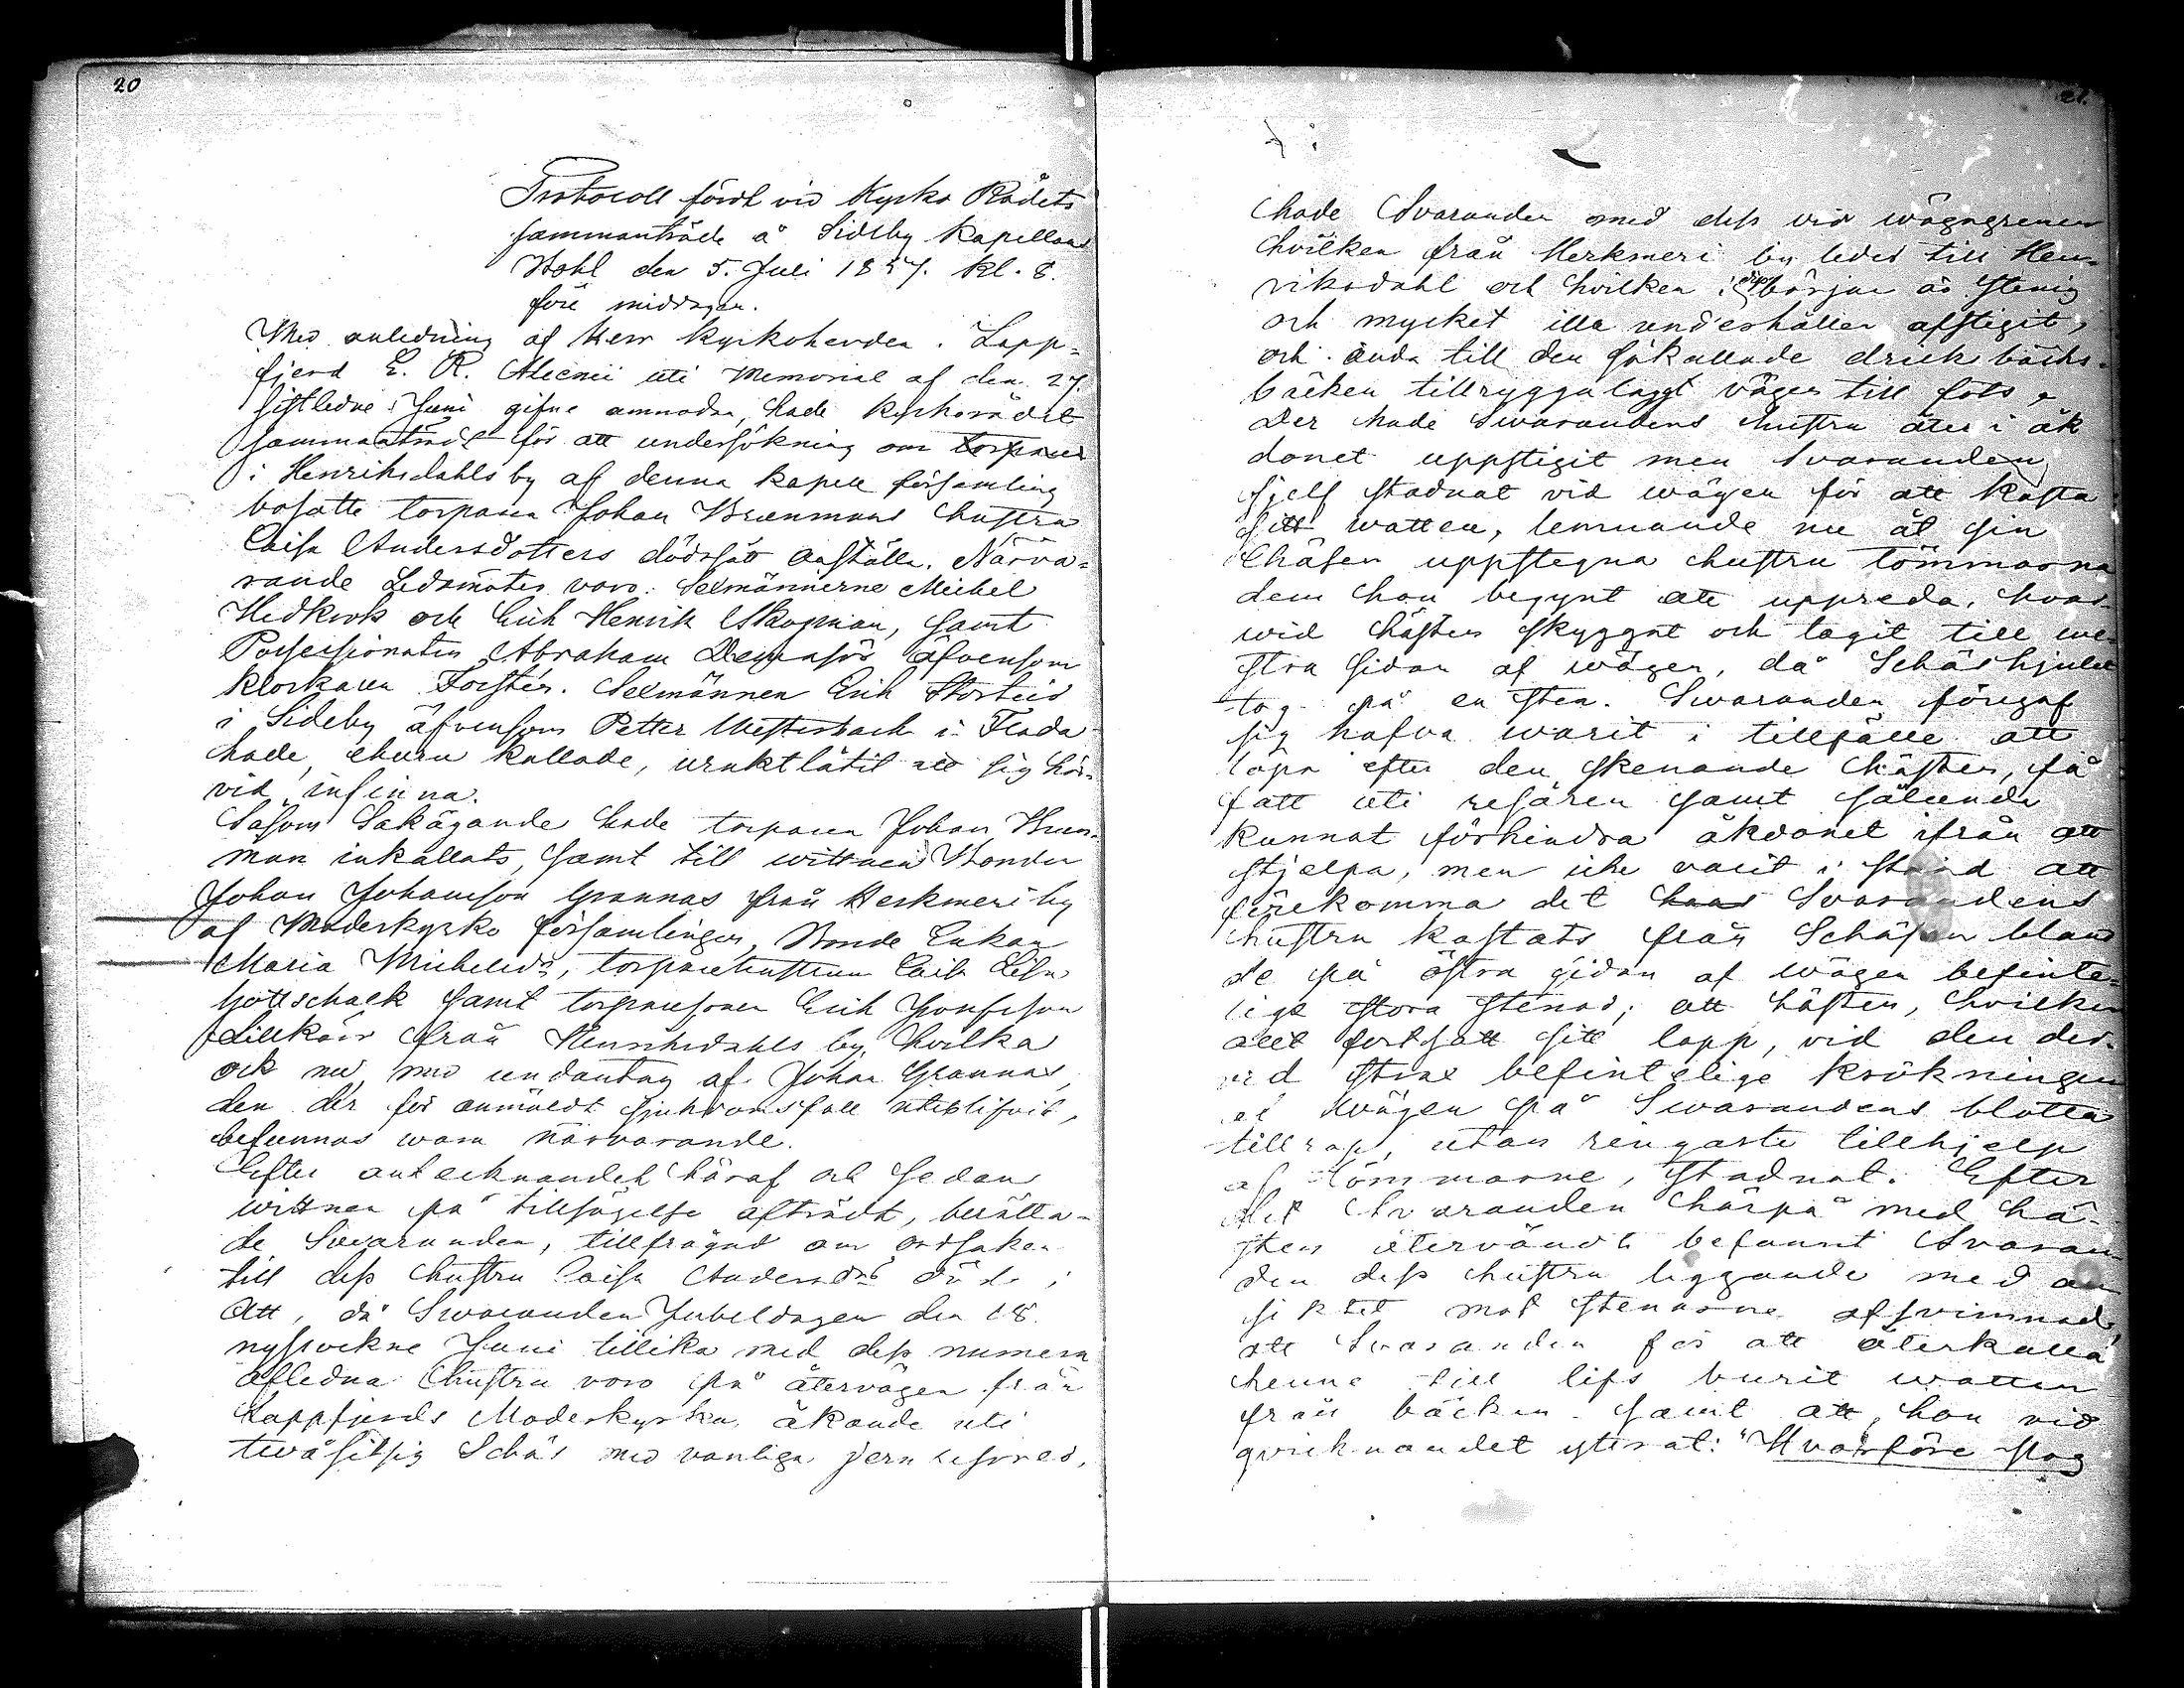 20
Protocoll fördt vid Kyrko Rådets
sammanträde å Sideby Kapellans
Bohl den 5. Juli 1857. kl. 8.
före middagen.
Med anledning af Herr Kyrkoherden i Lapp-
fjerd E. R. Alcenii uti Memorial af den 27.
sistledne Juni gifne anmodan, hade Kyrkorådet
sammanträdt för att undersökning om torparen
i Henriksdahls by af denna kapell församling
bosatte torparen Johan Brunmans hustru
Caisa Andersdotters dödssätt anställa. Närva-
rande Ledamöter voro: Sexmännerne Michel
Hedkrok och Erik Henrik Skogman, samt
Possessionaten Abraham äfvensom
klockaren Forstén. Sexmännen Erik Storteir
i Sideby äfvensom Petter Westerback i Flada
hade, ehuru kallade, uraktlåtit att sig här-
vid infinna.
Såsom Sakägande hade torparen Johan Brun-
man inkallats, samt till wittnen Bonden
Johan Johansson Grannas från Herkmeri by
af Moderkyrko församlingen, Bonde Enkan
Maria Michelsdr, torparehustrun Caisa Lisa
Gottschalk samt torparesonen Erik Josefsson
Lillkårs från Henriksdahls by, hvilka
ock nu, med undantag af Johan Grannas,
den der för anmäldt sjukdomsfall uteblifvit,
befunnos wara närvarande.
Efter antecknandet häraf och sedan
wittnen på tillsägelse afträdt, berätta-
de Swaranden, tillfrågad om orsaken
till dess hustru Caisa Andersdrs död:
Att, då Swaranden Jubeldagen den 18.
nyssvekne Juni tillika med dess numera
afledna hustru voro på återvägen från
Lappfjerds Moderkyrka, åkande uti
twåsitsig Schäs med vanliga jern resorer,
21.
hade Svaranden med dess vid wägagrenen
hvilken från Herkmeri by leder till Hen-
riksdahl och hvilken i dess början är stenig
och mycket illa underhållen afstigit,
och ända till den såkallade drick bäcks-
bäcken tillryggalaggt vägen till fots,
der hade Swarandens hustru åter i åk
donet uppstigit men Svaranden
sjelf stadnat vid wägen för att kasta
sitt watten, lemnande nu åt sin
Chäsen uppstegna hustru tömmarna
dem hon begynt att uppreda, hvar-
wid hästen skyggat och tagit till we-
stra sidan af wägen, då Schäshjulet
tog på en sten. Swaranden föregaf
sig hafva warit i tillfälle att
löpa efter den skenande hästen, få
fatt uti resåren samt sålunda
kunnat förhindra åkdonet ifrån att
stjelpa, men icke varit i stånd att
förekomma det hans Svarandens
hustru kastats från Schäsen bland
de på östra sidan af wägen befinte-
lige stora stenar; att hästen, hvilken
allt fortsatt sitt lopp, vid den der-
vid strax befintelige krökningen
af wägen på Swarandens blotta
tillrop, utan ringaste tillhjelp
af tömmarne, stadnat. Efter
det Svaranden härpå med hä-
sten återvändt befannt Svaran
den dess hustru liggande med an
siktet mot stenarne afsvimmad,
att Svaranden för att återkalla
henne till lifs burit watten
från bäcken samt att hon vid
qvicknandet yttrat: "Hvarföre slog